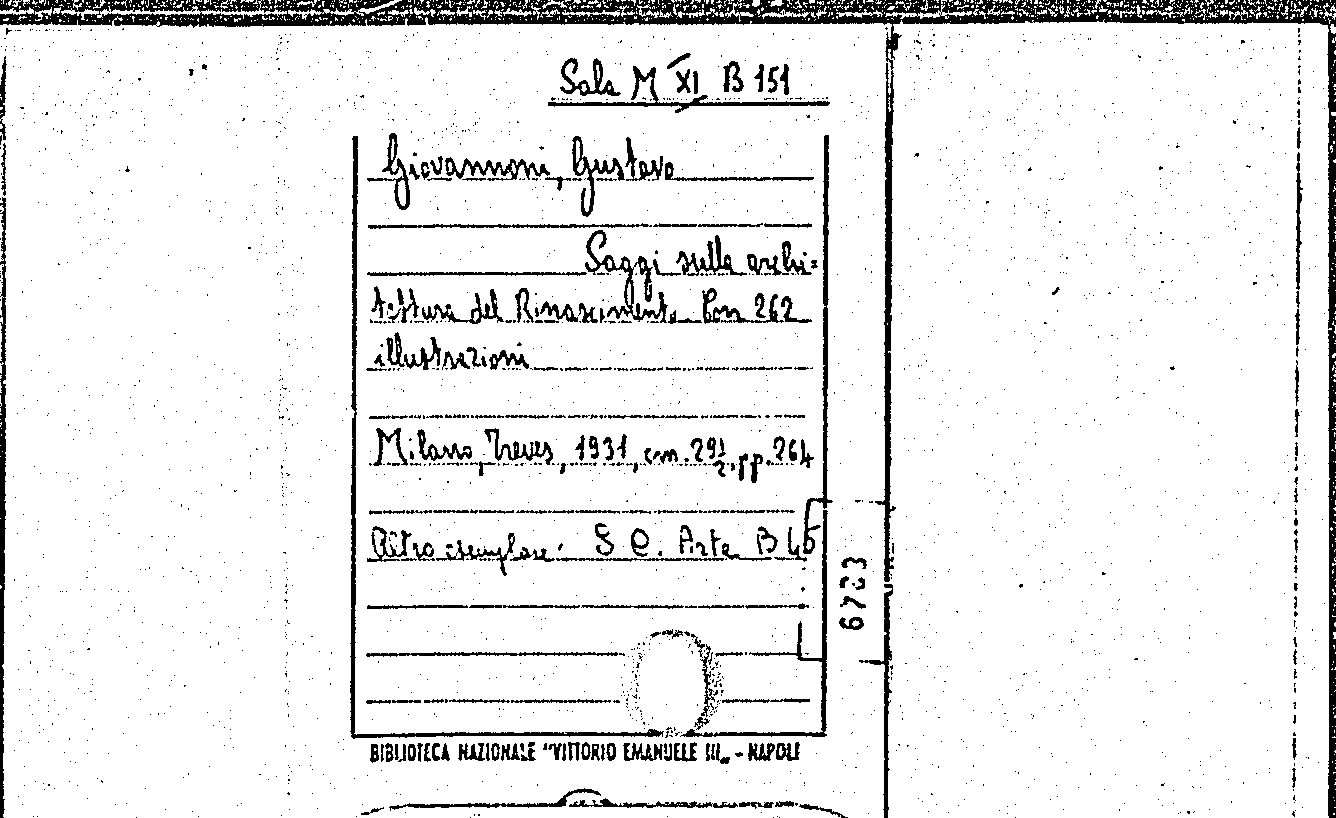 Sala M XI B 151
Giovannoni, Gustavo
Saggi sulla archi=
tettura del Rinascimento Con 262
illustrazioni
Milano, Treves, 1931, cm. 29½, pp. 264
Altro esemplare: S C. Arte B 45
6723
BIBLIOTECA NAZIONALE "VITTORIO EMANUELE III„ - NAPOLI